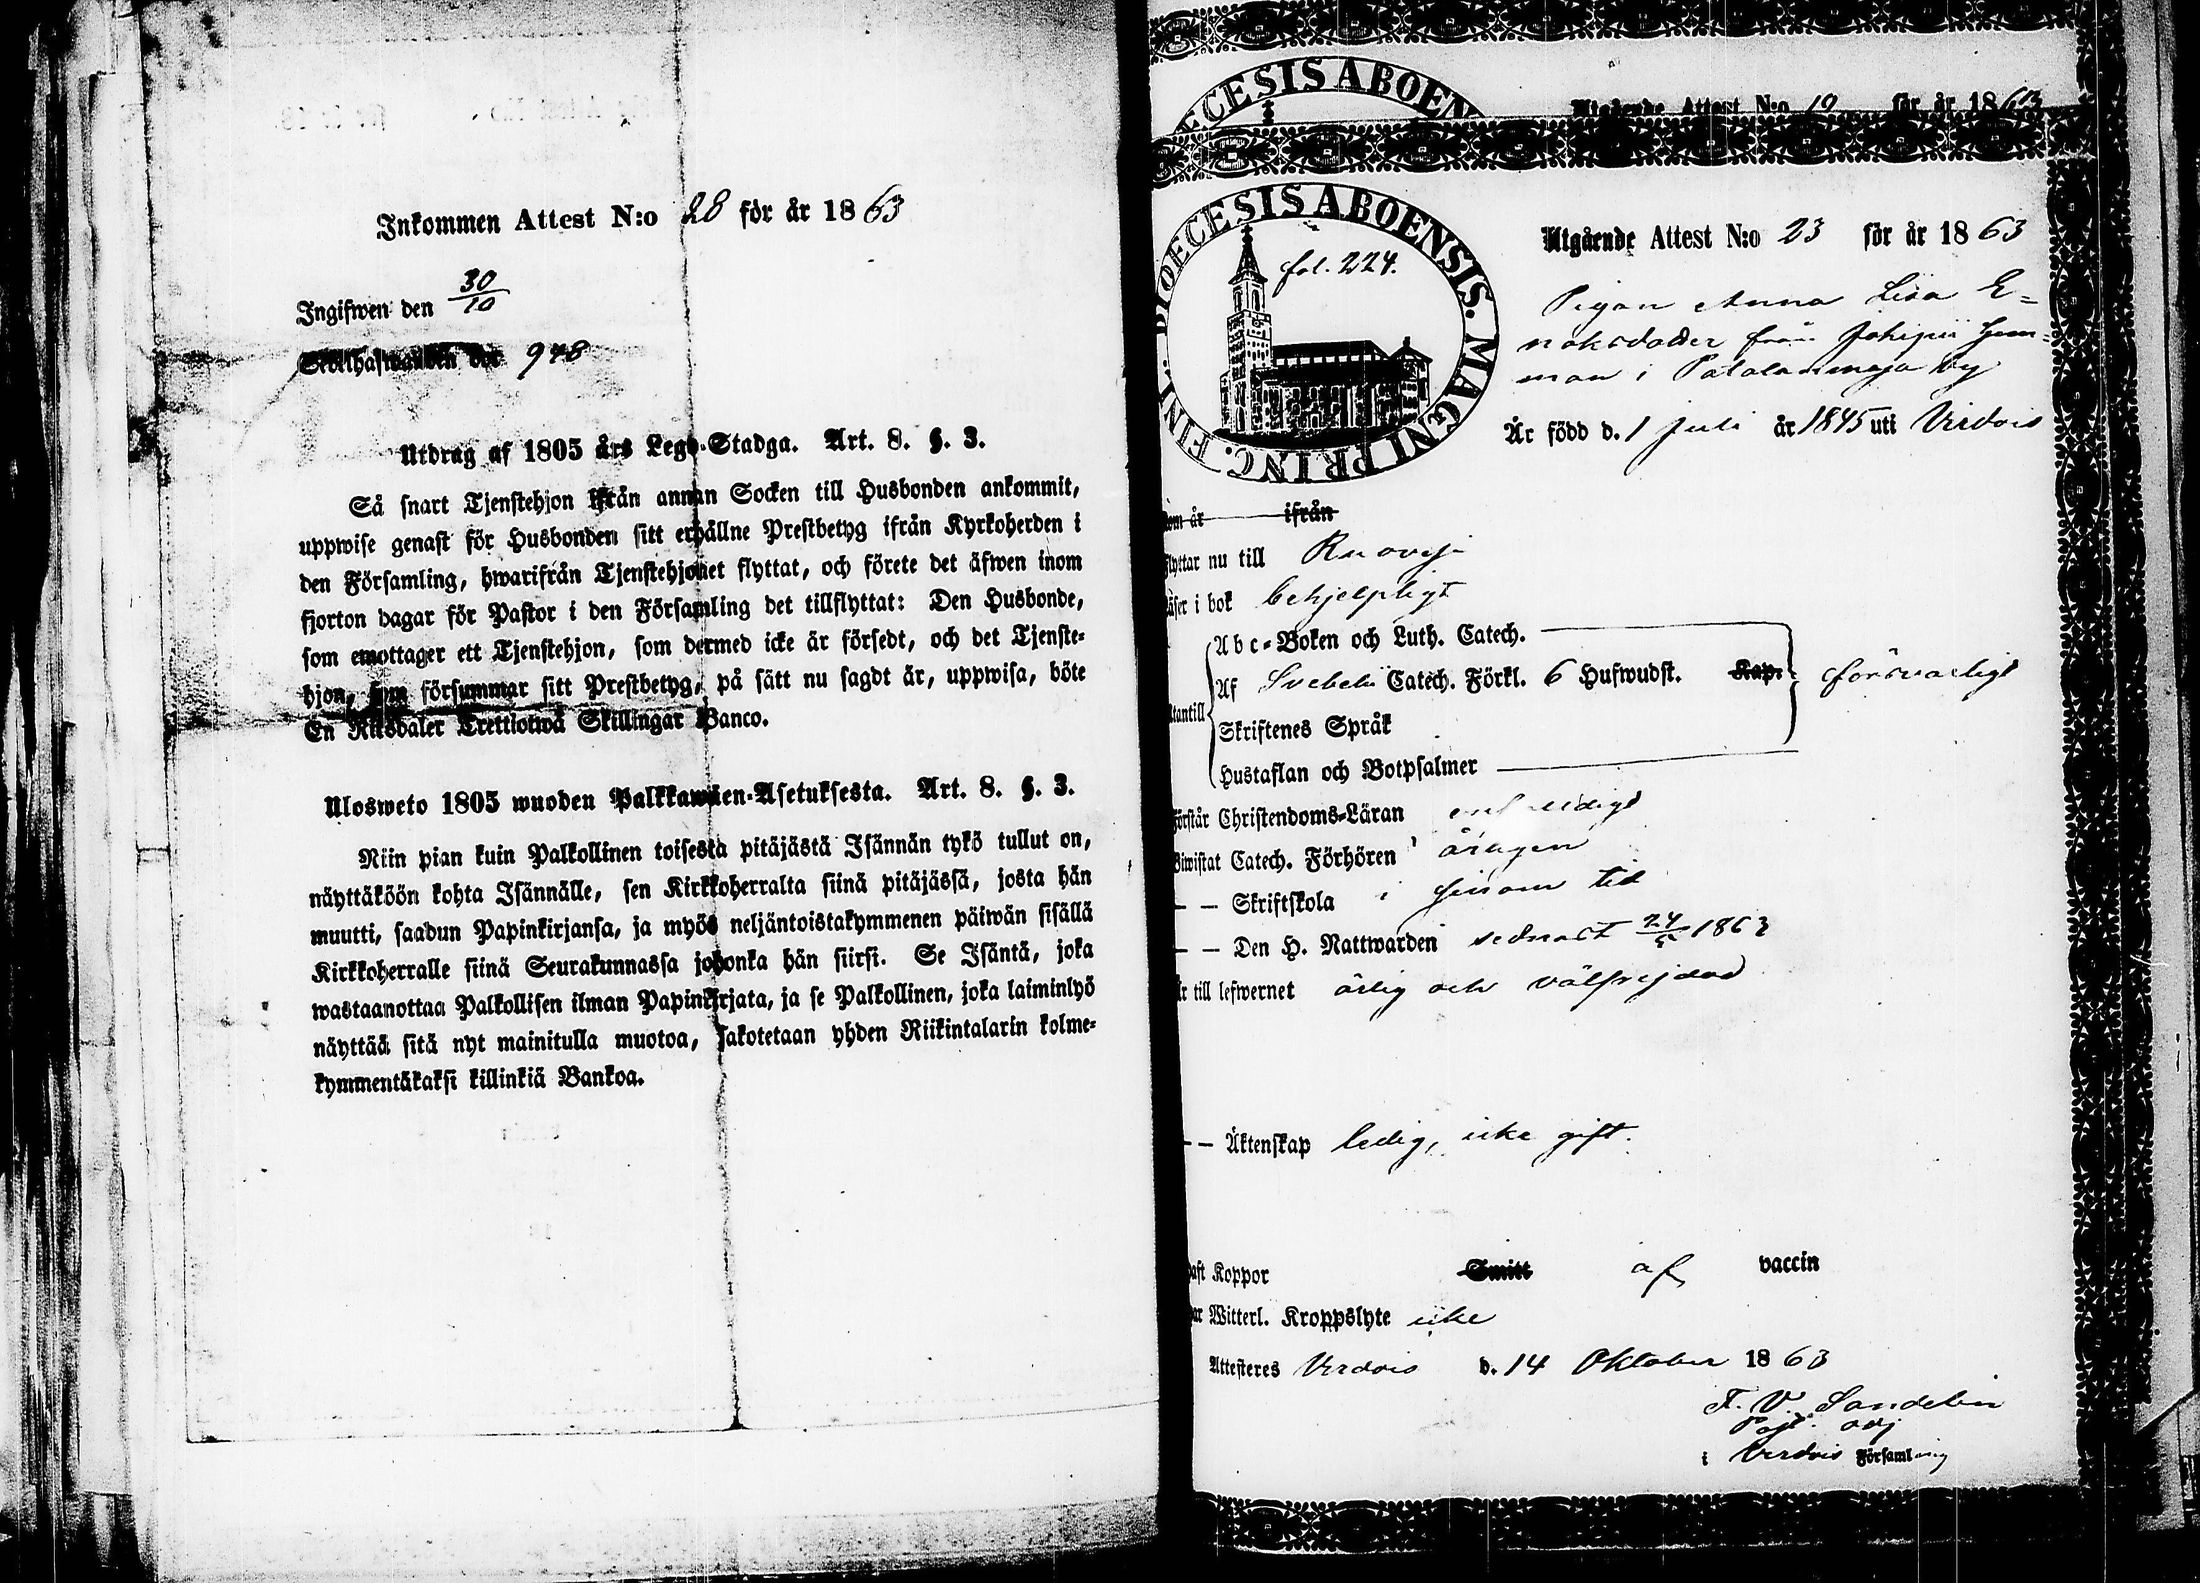 Inkommen Attest N:o 28 för år 1863
Ingifwen den 30/10
948
Utdrag af 1805 års Lego-Stadga. Art. 8. §. 3.
Så snart Tjenstehjon ifrån annan Socken till Husbonden ankommit,
uppwise genast för Husbonden sitt erhållne Prestbetyg ifrån Kyrkoherden i
den Församling, hwarifrån Tjenstehjonet flyttat, och förete det äfwen inom
fjorton dagar för Pastor i den Församling det tillflyttat: Den Husbonde,
som emottager ett Tjenstehjon, som dermed icke är försedt, och det Tjenste-
hjon, som försummar sitt Prestbetyg, på sätt nu sagdt är, uppwisa, böte
En Riksdaler Trettiotwå Skillingar Banco.
Ulosweto 1805 wuoden Palkkawäen-Asetuksesta. Art. 8. §. 3.
Niin pian kuin Palkollinen toisesta pitäjästä Isännän tykö tullut on,
näyttäköön kohta Isännälle, sen Kirkkoherralta siinä pitäjässä, josta hän
muutti, saadun Papinkirjansa, ja myös neljäntoistakymmenen päiwän sisällä
Kirkkoherralle siinä Seurakunnassa johonka hän siirsi. Se Isäntä, joka
wastaanottaa Palkollisen ilman Papinkirjata, ja se Palkollinen, joka laiminlyö
näyttää sitä nyt mainitulla muotoa, sakotetaan yhden Riikintalarin kolme-
kymmentäkaksi killinkiä Bankoa.
DIOECESIS ABOEN
Utgående Attest N:o 19 för år 1863
DIOECESIS ABOENSIS. MAGNI PRINC. FINL.
fol. 224.
Utgående Attest N:o 23 för år 1863
Pigan Anna Lisa E-
noksdotter från Johipii hem-
man i by
Är född d. 1 Juli år 1845 uti Virdois
ifrån
flyttar nu till Ruovesi
läser i bok behjelpligt
Abc-Boken och Luth. Catech.
Af Svebelii Catech. Förkl. 6 Hufwudst. Kap. försvarligt
utantill
Skriftenes Språk
Hustaflan och Botpsalmer
Förstår Christendoms-Läran enfaldigt
Biwistat Catech. Förhören årligen
— — Skriftskola i sinom tid
— — Den H. Nattwarden sednast 24/5 1863
Är till lefwernet ärlig och välfrejdad
— — Äktenskap ledig, icke gift.
haft Koppor Smitt af vaccin
har Witterl. Kroppslyte icke
Attesteres Virdois d. 14 Oktober 1863
F. V. Sandelin
Past. adj
i Virdois Församling